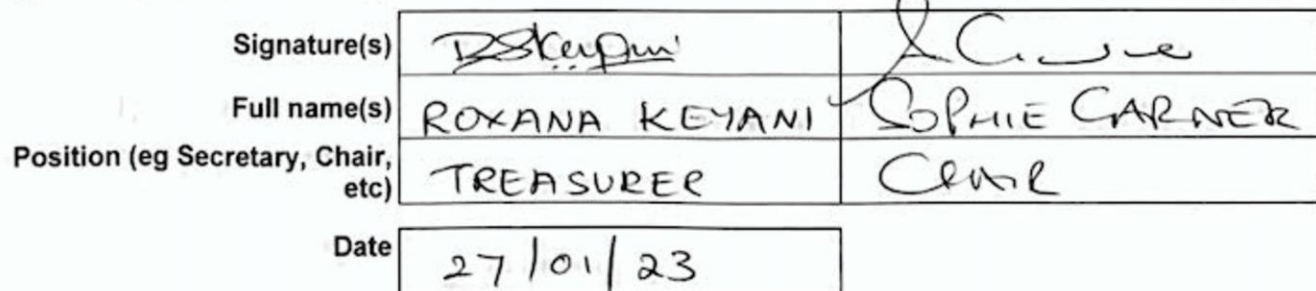 Signature(s)
Full name(s) ROXANA KEYANI SOPHIE GARNER
Position (eg Secretary, Chair,
etc) TREASURER CHAIR
Date 27/01/23